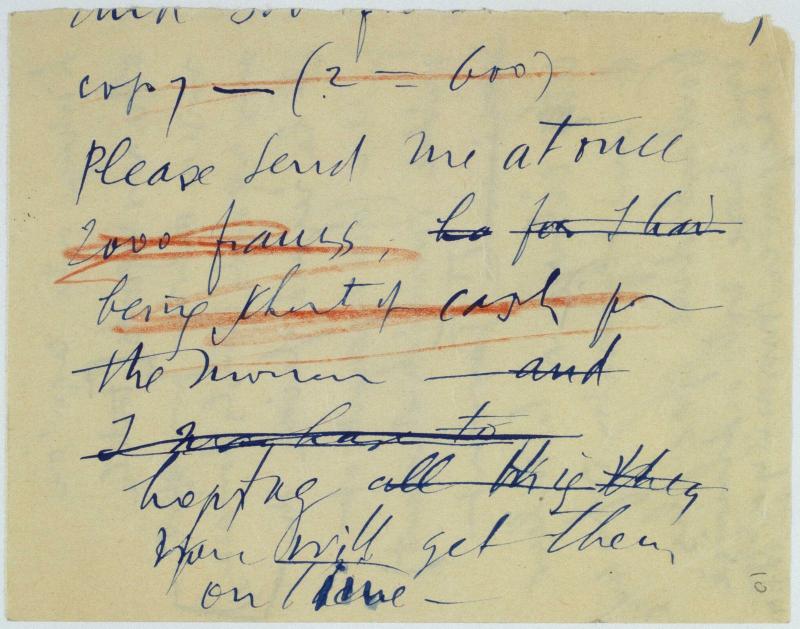 copy — (2 = 600)
Please send me at once
2000 francs, for I have
being short of cash for
the momen — and
I may have to
hoping all this
you will get them
on time —
10